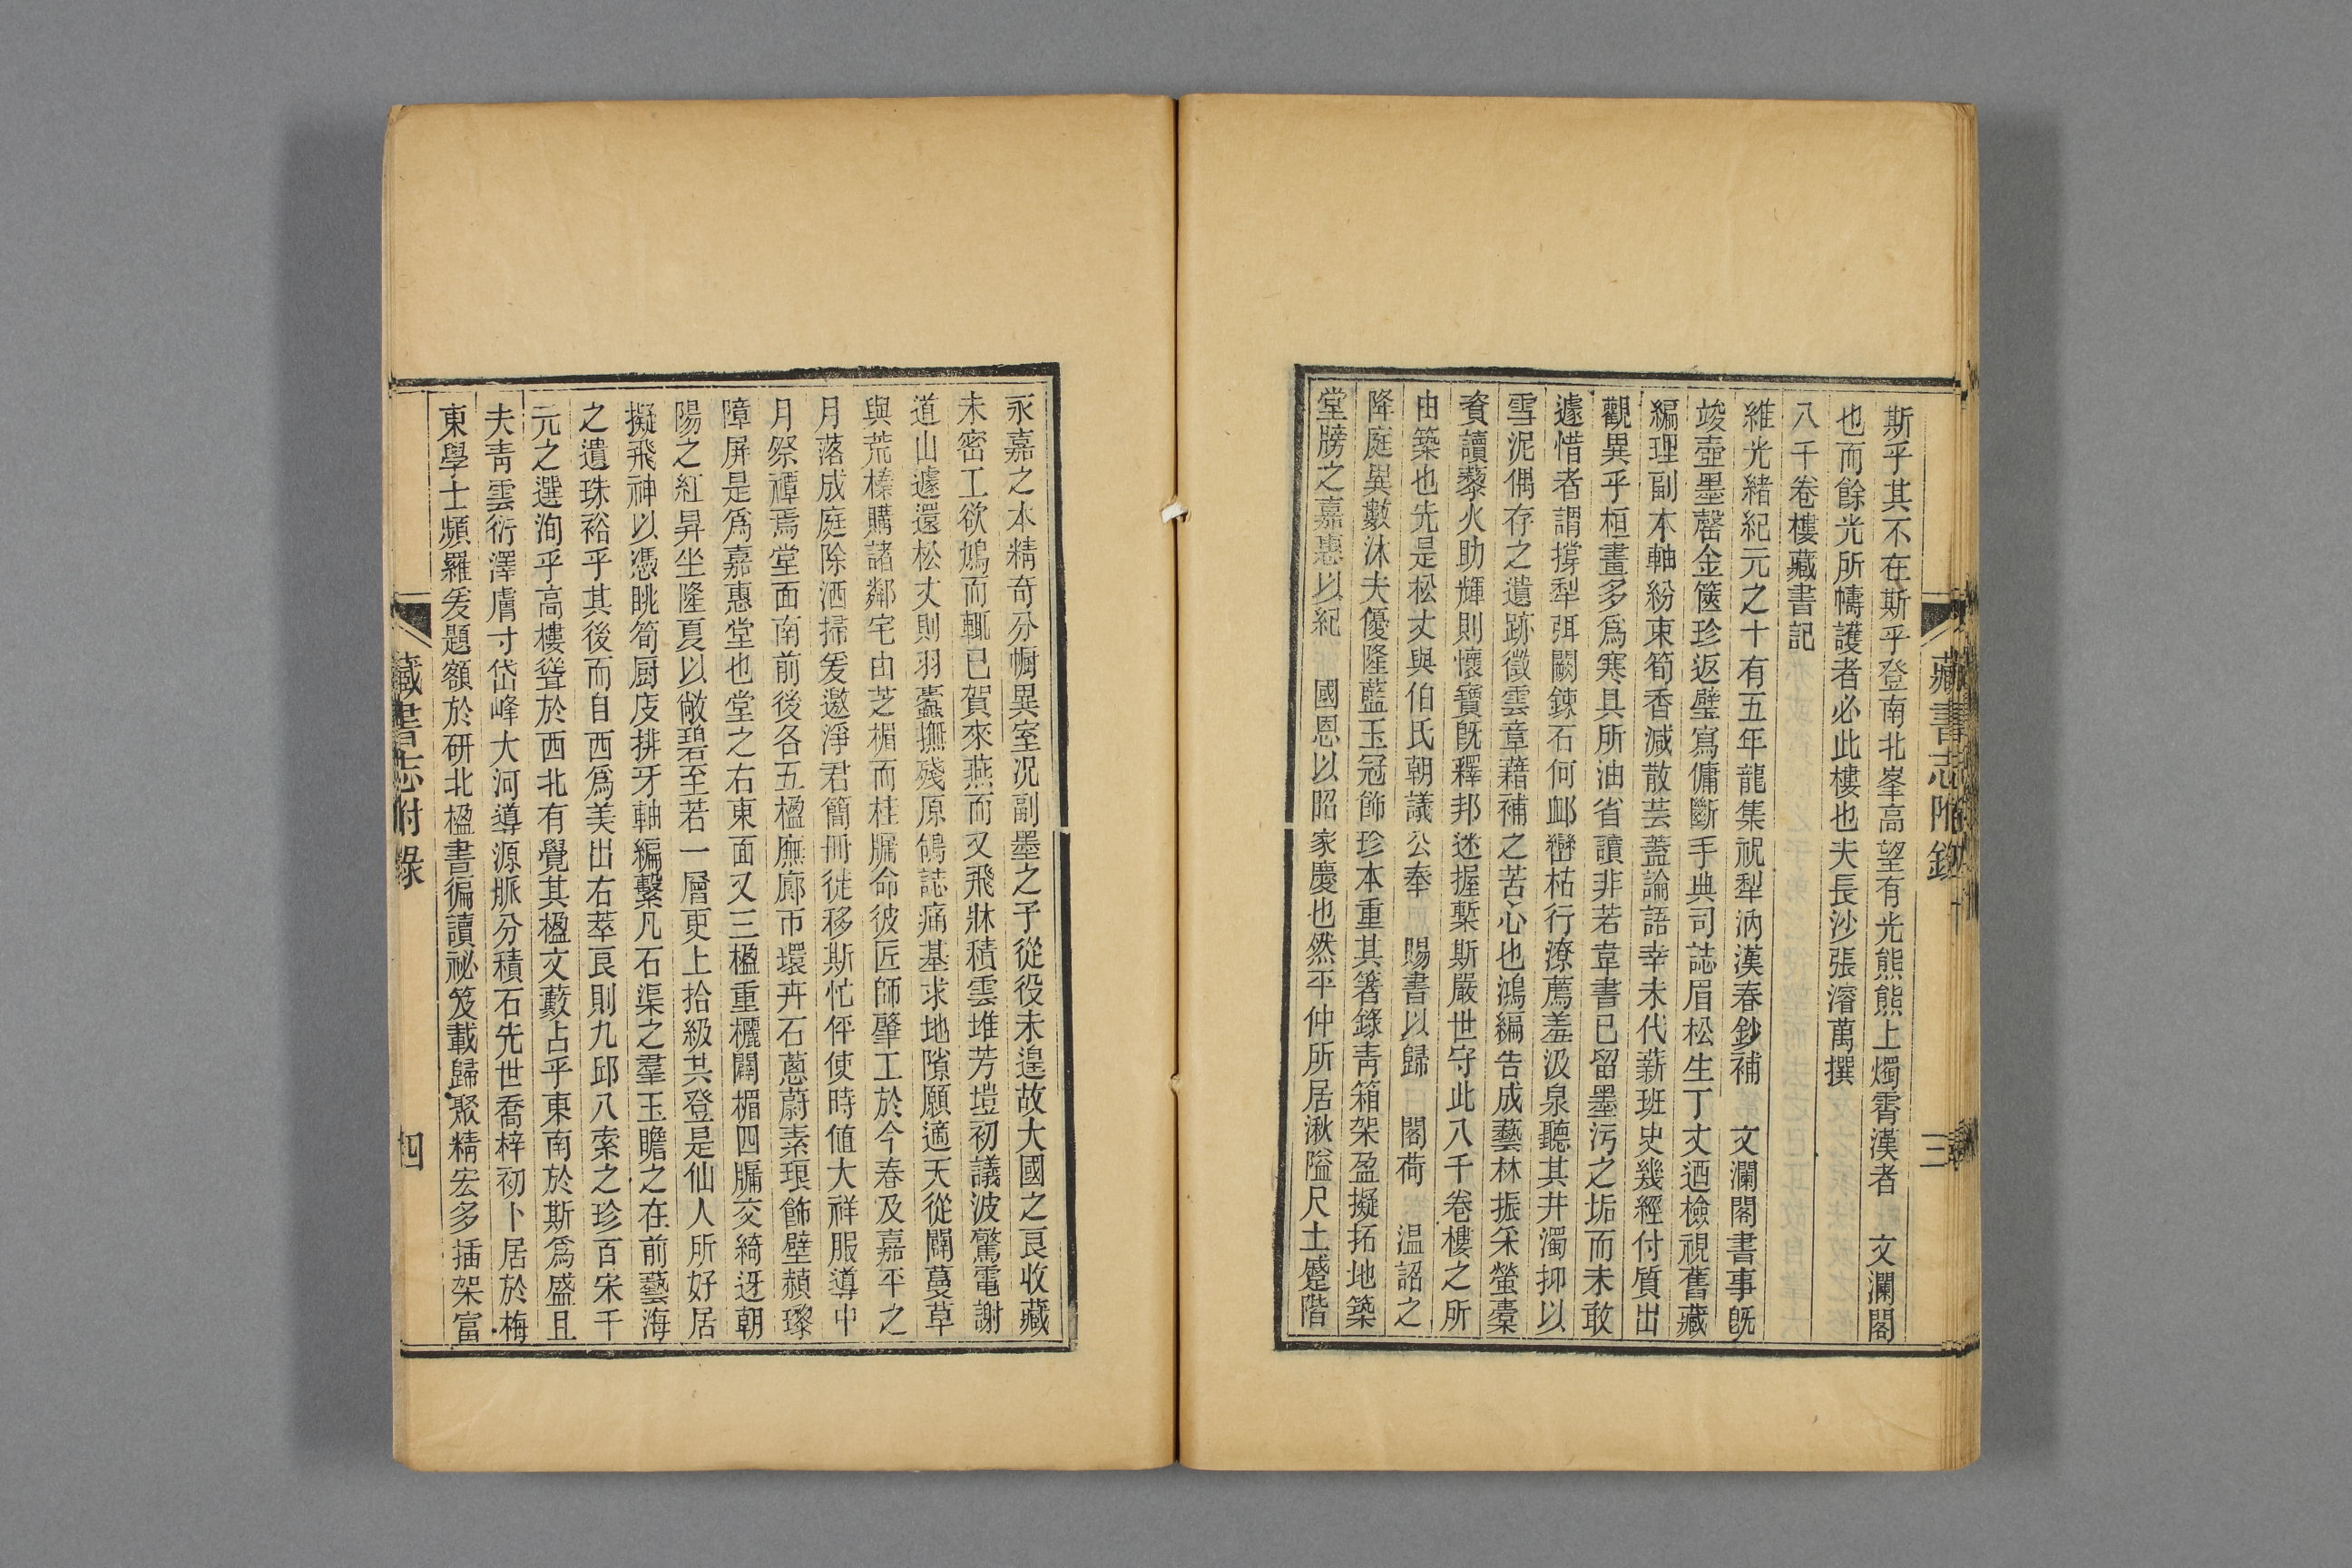 藏書志附錄
三
斯乎其不在斯乎登南北峯高望有光熊熊上燭霄漢者 文瀾閣
也而餘光所幬護者必此樓也夫長沙張濬萬撰
八千卷樓藏書記
維光緒紀元之十有五年龍集祝犁汭漢春鈔補 文瀾閣書事既
竣壺墨罄金篋珍返璧寫傭斷手典司誌眉松生丁丈迺檢視舊藏
編理副本軸紛束筍香減散芸蓋論語幸未代薪班史幾經付質出
觀異乎桓畫多為寒具所油省讀非若韋書已留墨污之垢而未敢
遽惜者謂撐犁弭闕鍊石何卹巒枯行潦薦羞汲泉聽其井濁抑以
雪泥偶存之遺跡徵雲章藉補之苦心也鴻編告成藝林振采螢橐
資讀藜火助輝則懷寶旣釋邦迷握槧斯嚴世守此八千卷樓之所
由築也先是松丈與伯氏朝議公奉 賜書以歸 閣荷 温詔之
降庭巽數沐夫優隆藍玉冠飾珍本重其箸錄青箱架盈擬拓地築
堂牓之嘉惠以紀 國恩以昭家慶也然平仲所居湫隘尺土蹙階
永嘉之本精奇分幮異室况副墨之子從役未遑故大國之良收藏
未密工欲鳩而輒已賀來燕而又飛牀積雲堆芳塏初議波驚電謝
道山遽還松丈則羽蠹撫殘原鴒誌痛基求地隙願適天從闢蔓草
與荒榛購諸鄰宅由芝楣而桂牖命彼匠師肇工於今春及嘉平之
月落成庭除洒掃爰邀淨君簡冊徙移斯忙伻使時值大祥服導中
月祭禫焉堂面南前後各五楹廡廊帀環卉石蔥蔚素琅飾壁赬璨
障屏是為嘉惠堂也堂之右東面又三楹重欐闢楣四牖交綺迓朝
陽之紅昇坐隆夏以敞碧至若一層更上拾級其登是仙人所好居
擬飛神以憑眺筍厨庋排牙軸編繫凡石渠之羣玉瞻之在前藝海
之遺珠裕乎其後而自西為美出右萃良則九邱八索之珍百宋千
元之選洵乎高樓聳於西北有覺其楹文藪占乎東南於斯為盛且
夫靑雲衍澤膚寸岱峰大河導源脈分積石先世喬梓初卜居於梅
東學士頻羅爰題額於研北楹書徧讀祕笈載歸聚精宏多插架富
藏書志附錄
四